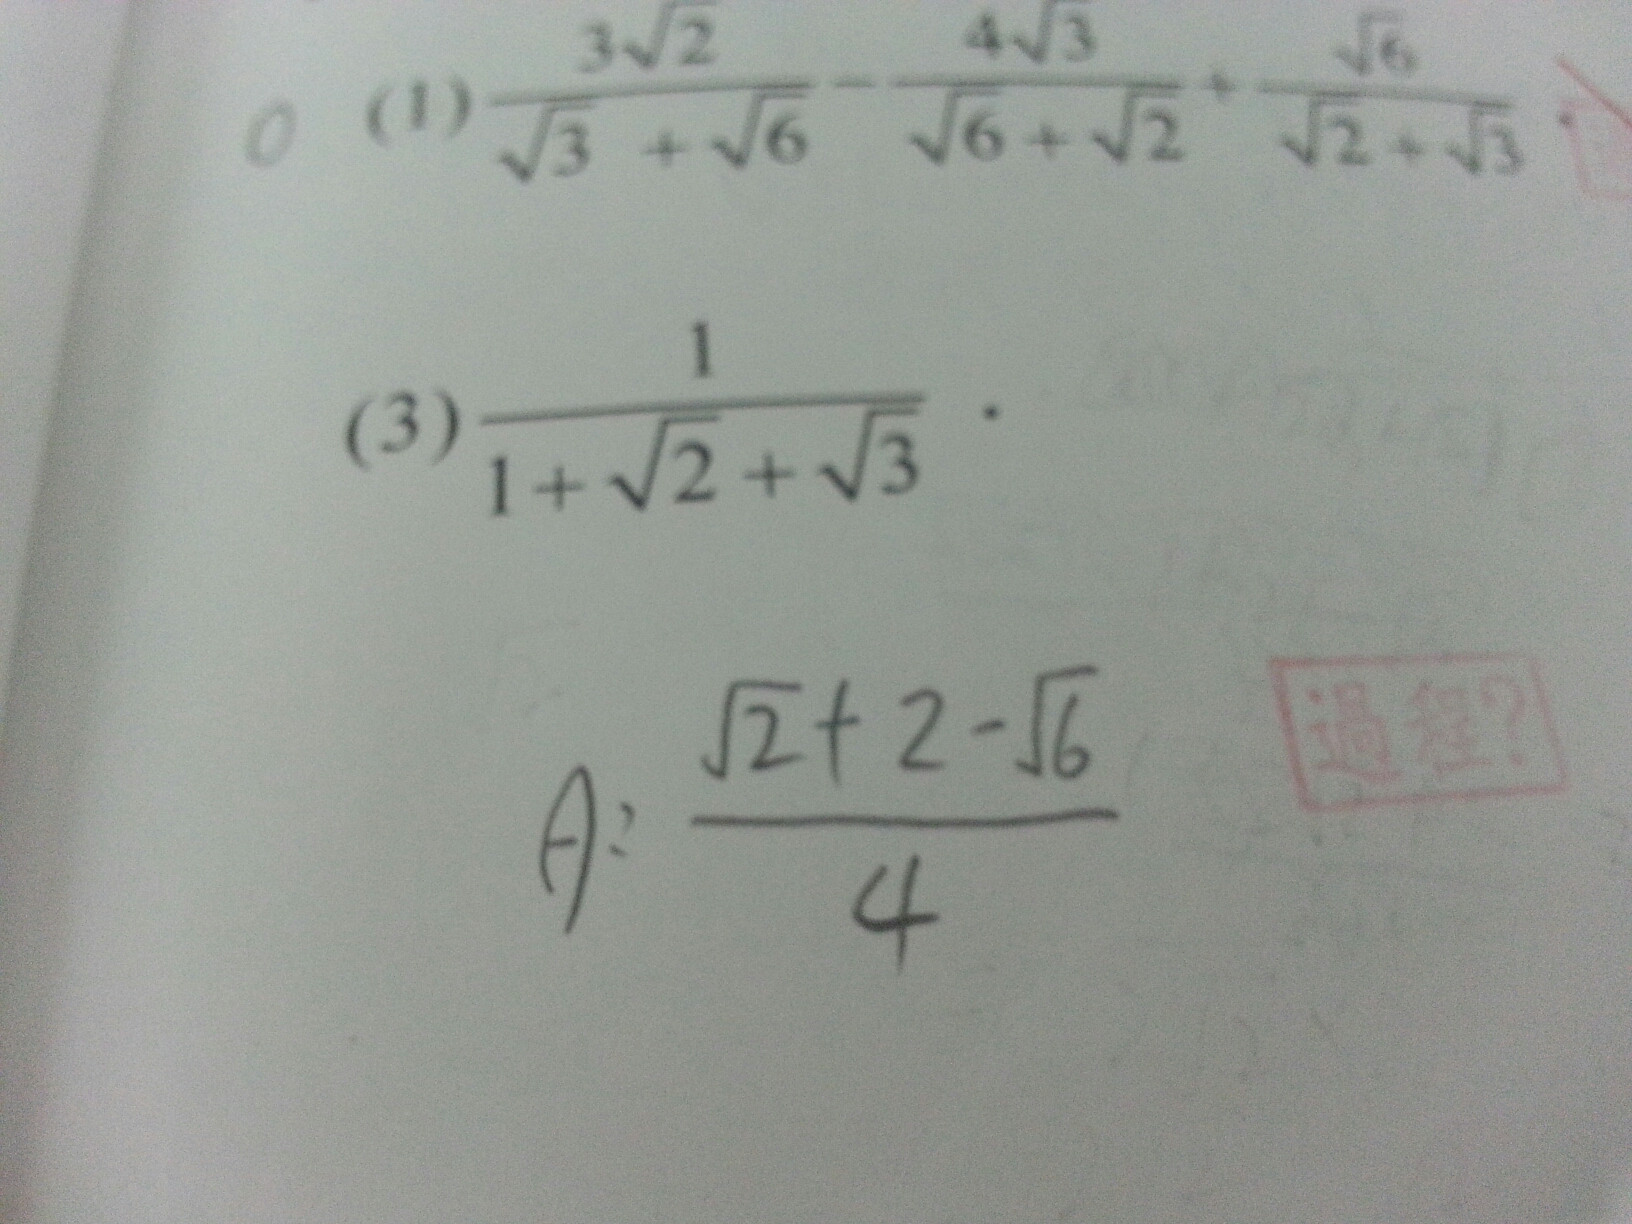 0 (1) 3√2/(√3 + √6) - 4√3/(√6 + √2) + √6/(√2 + √3) .
(3) 1/(1 + √2 + √3) .
A: (√2 + 2 - √6)/4
過程?